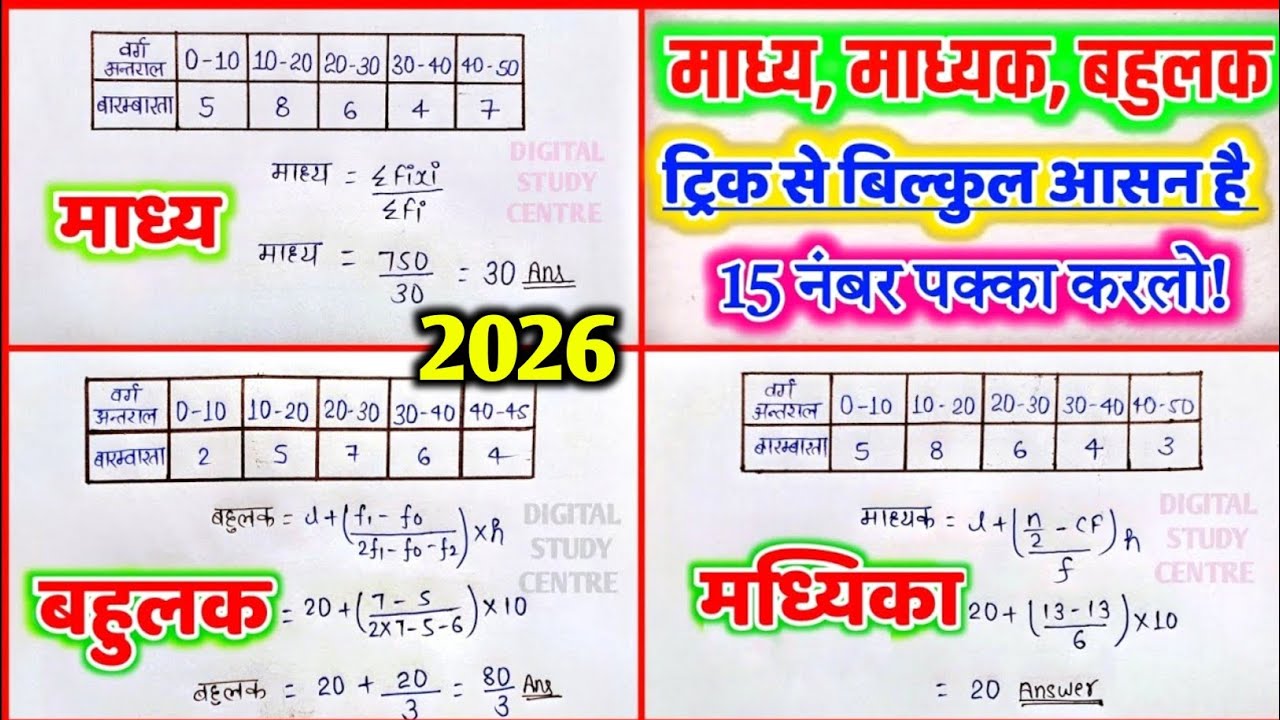 वर्ग अन्तराल 0-10 10-20 20-30 30-40 40-50
बारम्बारता 5 8 6 4 7
माध्य = Σfixi / Σfi
माध्य
माध्य = 750/30 = 30 Ans
DIGITAL
STUDY
CENTRE
माध्य, माध्यक, बहुलक
ट्रिक से बिल्कुल आसन है
15 नंबर पक्का करलो!
2026
वर्ग अन्तराल 0-10 10-20 20-30 30-40 40-45
बारम्वारता 2 5 7 6 4
बहुलक = l+(f₁-f₀ / 2f₁-f₀-f₂)×h
DIGITAL
STUDY
CENTRE
बहुलक
= 20+(7-5 / 2×7-5-6)×10
बहुलक = 20 + 20/3 = 80/3 Ans
वर्ग अन्तराल 0-10 10-20 20-30 30-40 40-50
बारम्बारता 5 8 6 4 3
माध्यक = l+(n/2 - CF / f)h
DIGITAL
STUDY
CENTRE
मध्यिका
20+(13-13 / 6)×10
= 20 Answer